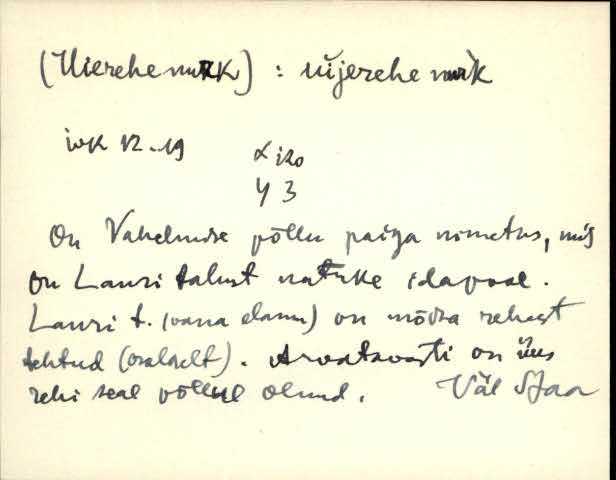 (Uierehe nurk) : uijerehe nurk
12-19
x 120
y 3
On Vahelmise põllu paiga nimetus, mis
on Lauri talust natuke idapool.
Lauri t. (vana elamu) on mõisa rehest
tehtud (osaliselt). Arvatavasti on üks
rehi seal põllul olnud. Väl Staa